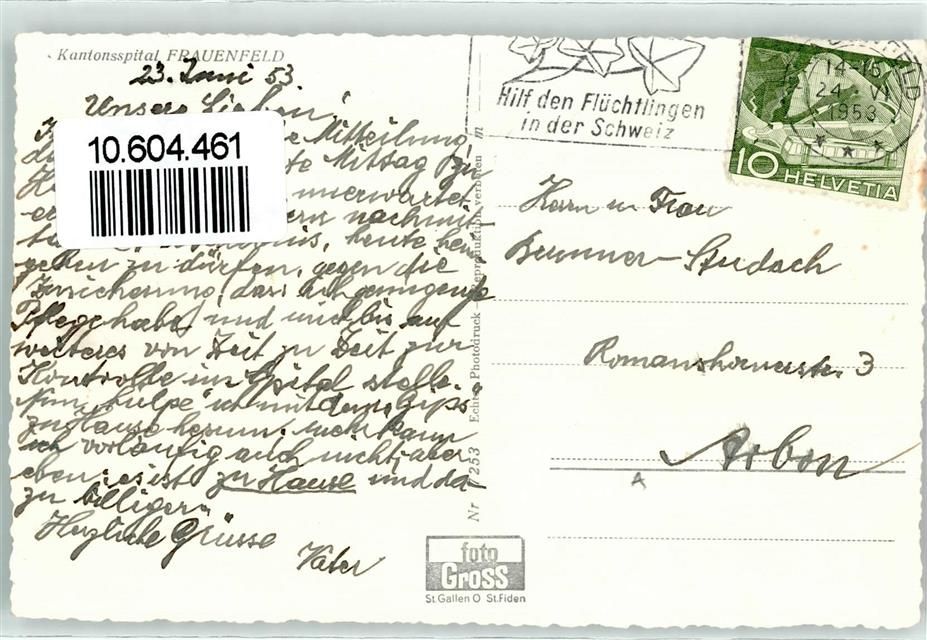 Kantonsspital FRAUENFELD
23. Juni 53
Unsere Lieben!
Mitteilung
10.604.461
Mittag
unerwartet
nachmit
heute heim
gehen zu dürfen, gegen die
Zusicherung, dass ich genügende
Pflege habe und mich bis auf
weiteres von Zeit zu Zeit zur
Kontrolle im Spital stelle.
Nun "hülpe" ich mit dem Gips
zu Hause herum; mehr kann
ich vorläufig auch nicht; aber
eben: es ist zu Hause und da
zu billiger.
Herzliche Grüsse
Vater
Nr 7253 Echte Photodruck - Reproduktion verboten
foto
GROSS
St.Gallen O St.Fiden
Hilf den Flüchtlingen
in der Schweiz
14-15
24. VI
1953
10 HELVETIA
Herrn u Frau
Brunner-Studach
Romanshornerstr. 3
Arbon